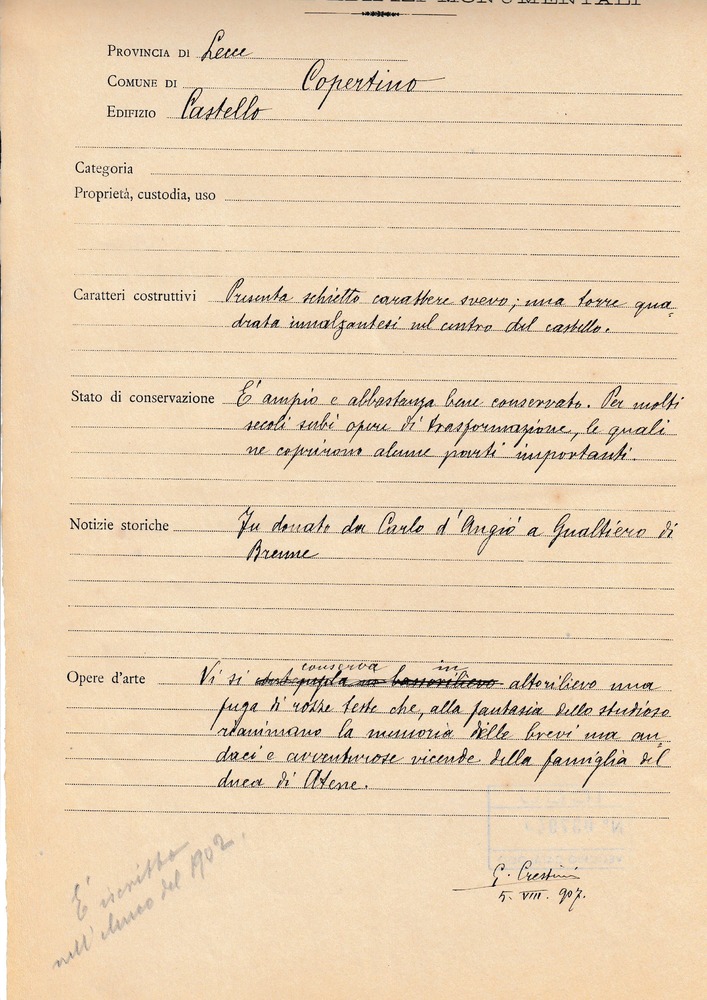 EDIFIZI MONUMENTALI
PROVINCIA DI Lecce
COMUNE DI Copertino
EDIFIZIO Castello
Categoria
Proprietà, custodia, uso
Caratteri costruttivi Presenta schietto carattere svevo; una torre qua-
drata innalzantesi nel centro del castello.
Stato di conservazione E' ampio e abbastanza bene conservato. Per molti
secoli subì opere di trasformazione, le quali
ne coprirono alcune parti importanti.
Notizie storiche Fu donato da Carlo d'Angiò a Gualtiero di
Brenne
conserva in
Opere d'arte Vi si un bassorilievo altorilievo una
fuga di rozze teste che, alla fantasia dello studioso
rianimano la memoria delle brevi ma au-
daci e avventurose vicende della famiglia del
duca di Atene.
E' iscritto
nell'elenco del 1902.
G. Crestini
5. VIII. 907.